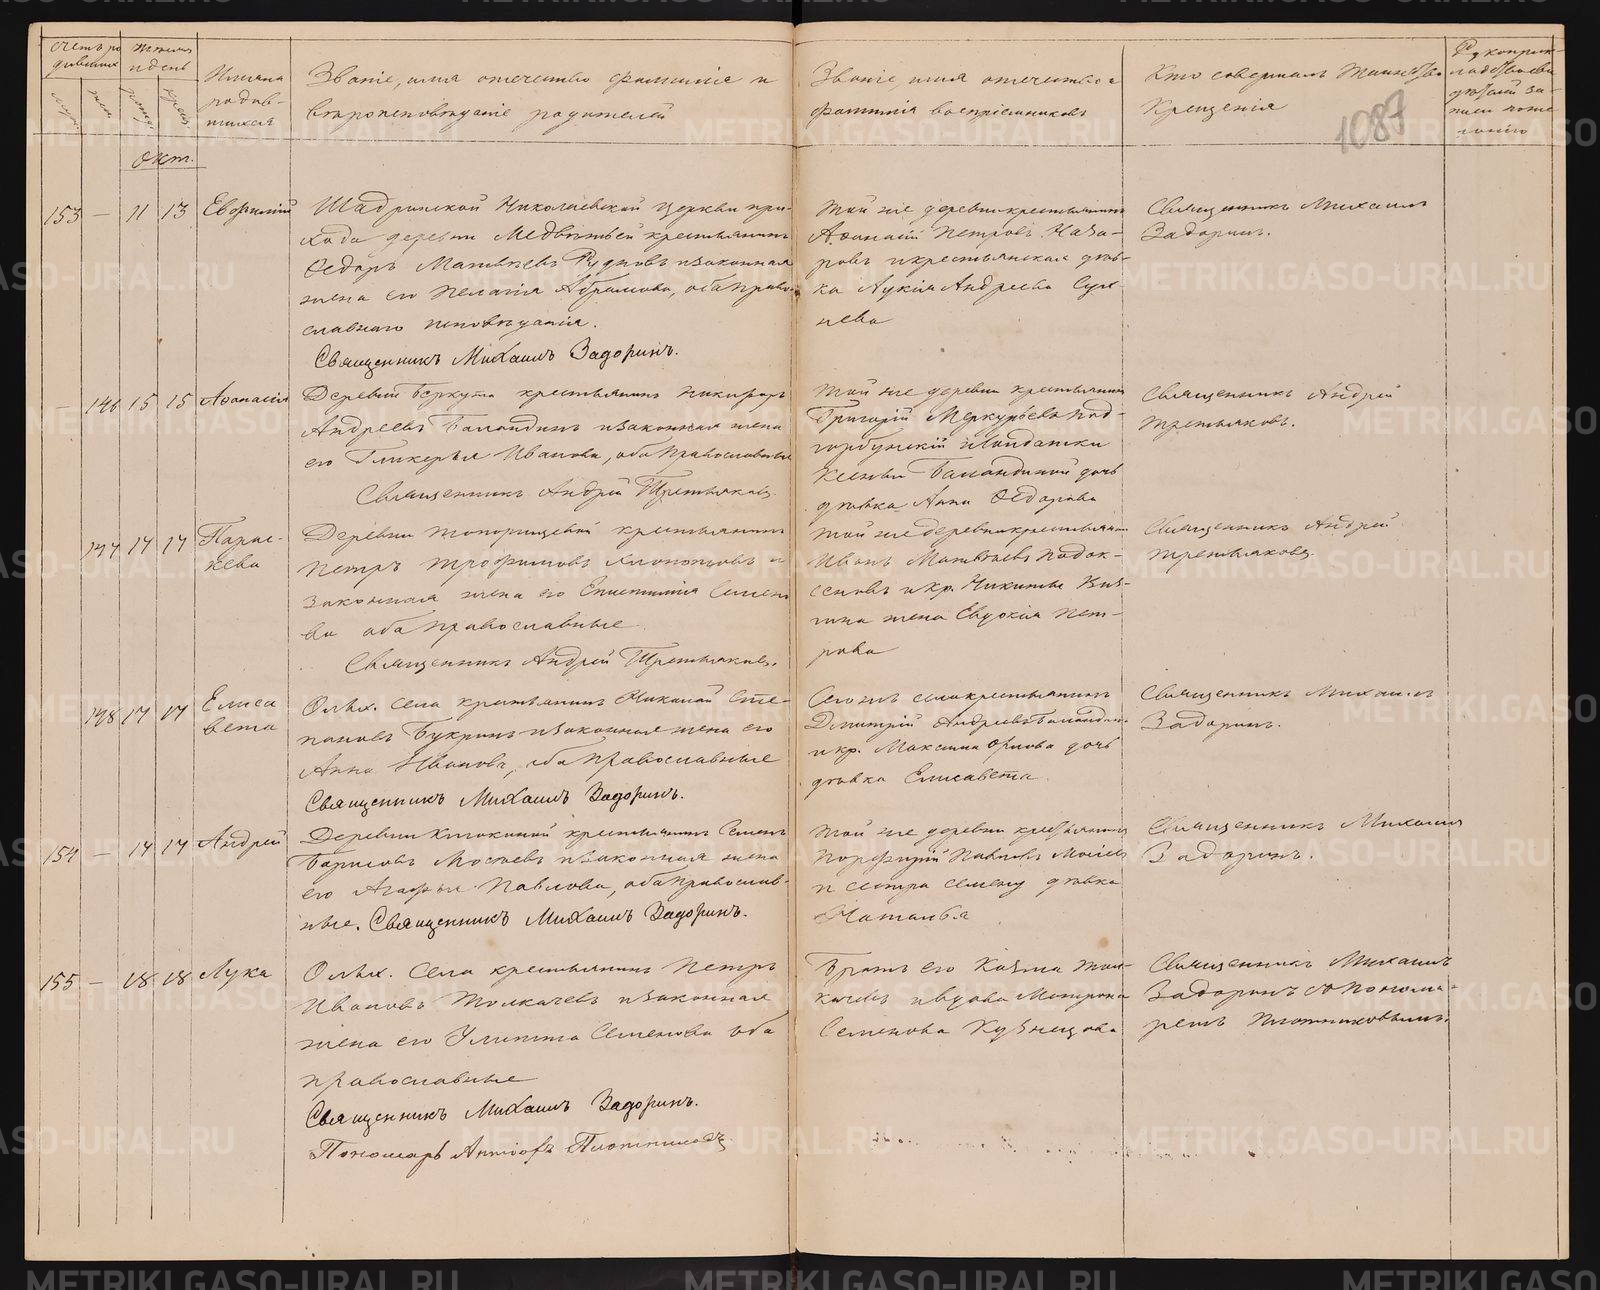 Счетъ ро
дившихся
Мѣсяцъ
и день
Имена
родив-
шихся
Званіе, имя отечество фамилія и
вѣроисповѣданіе родителей
Званіе, имя отечество и
фамилія воспріемниковъ
Кто совершалъ Таинство
Крещенія
1087
Окт.
153 — 11 13 Евфимій
Шадринской Николаевской церкви при-
хода деревни Медвѣжьей крестьянинъ
Ѳедоръ Матвѣевъ и законная
жена его Пелагія Абрамова, оба право-
славнаго исповѣданія.
Священникъ Михаилъ Задоринъ.
той же деревни крестьянинъ
Аѳанасій Петровъ Наза-
ровъ и крестьянская дѣв-
ка Лукія Андреева
Священникъ Михаилъ
Задоринъ.
— 146 15 15 Аѳанасія
Деревни Беркута крестьянинъ Никифоръ
Андреевъ Баландинъ и законная жена
его Гликерья Иванова, оба православные
Священникъ Андрей Третьяковъ.
той же деревни крестьянинъ
Григорій Меркурьевъ Под-
горбунскій и солдатки
Ксеньи Баландиной дочь
дѣвка Анна Ѳедорова
Священникъ Андрей
Третьяковъ.
147 17 17 Парас-
кева
Деревни Топорищевой крестьянинъ
Петръ Трофимовъ и
законная жена его Епистимія Семено-
ва оба православные
Священникъ Андрей Третьяковъ.
той же деревни крестьянинъ
Иванъ Матвѣевъ Падок-
сеновъ и кр. Никиты
жена Евдокія Пет-
рова
Священникъ Андрей
Третьяковъ.
148 17 17 Елиса
вета
Ольх. села крестьянинъ Николай Сте-
пановъ Букринъ и законная жена его
Анна Иванова, оба православные
Священникъ Михаилъ Задоринъ.
Сегожъ села крестьянинъ
Дмитрій Андреевъ Баландинъ
и кр. Максима Орлова дочь
дѣвка Елисавета
Священникъ Михаилъ
Задоринъ.
154 — 17 17 Андрей
Деревни Клюкиной крестьянинъ Семенъ
Борисовъ Мосѣевъ и законная жена
его Агафья Павлова, оба православ-
ные. Священникъ Михаилъ Задоринъ.
той же деревни крестьянинъ
Порфирій Павловъ Мосѣевъ
и сестра Семену дѣвка
Наталья
Священникъ Михаилъ
Задоринъ.
155 — 18 18 Лука
Ольх. Села крестьянинъ Петръ
Ивановъ Толкачевъ и законная
жена его Улитта Семенова оба
православные
Священникъ Михаилъ Задоринъ.
Пономарь Плотниковъ
Братъ его Козма Тол-
качевъ и вдова Матрона
Семенова Кузнецова
Священникъ Михаилъ
Задоринъ съ Понома-
ремъ Плотниковымъ.
METRIKI.GASO-URAL.RU